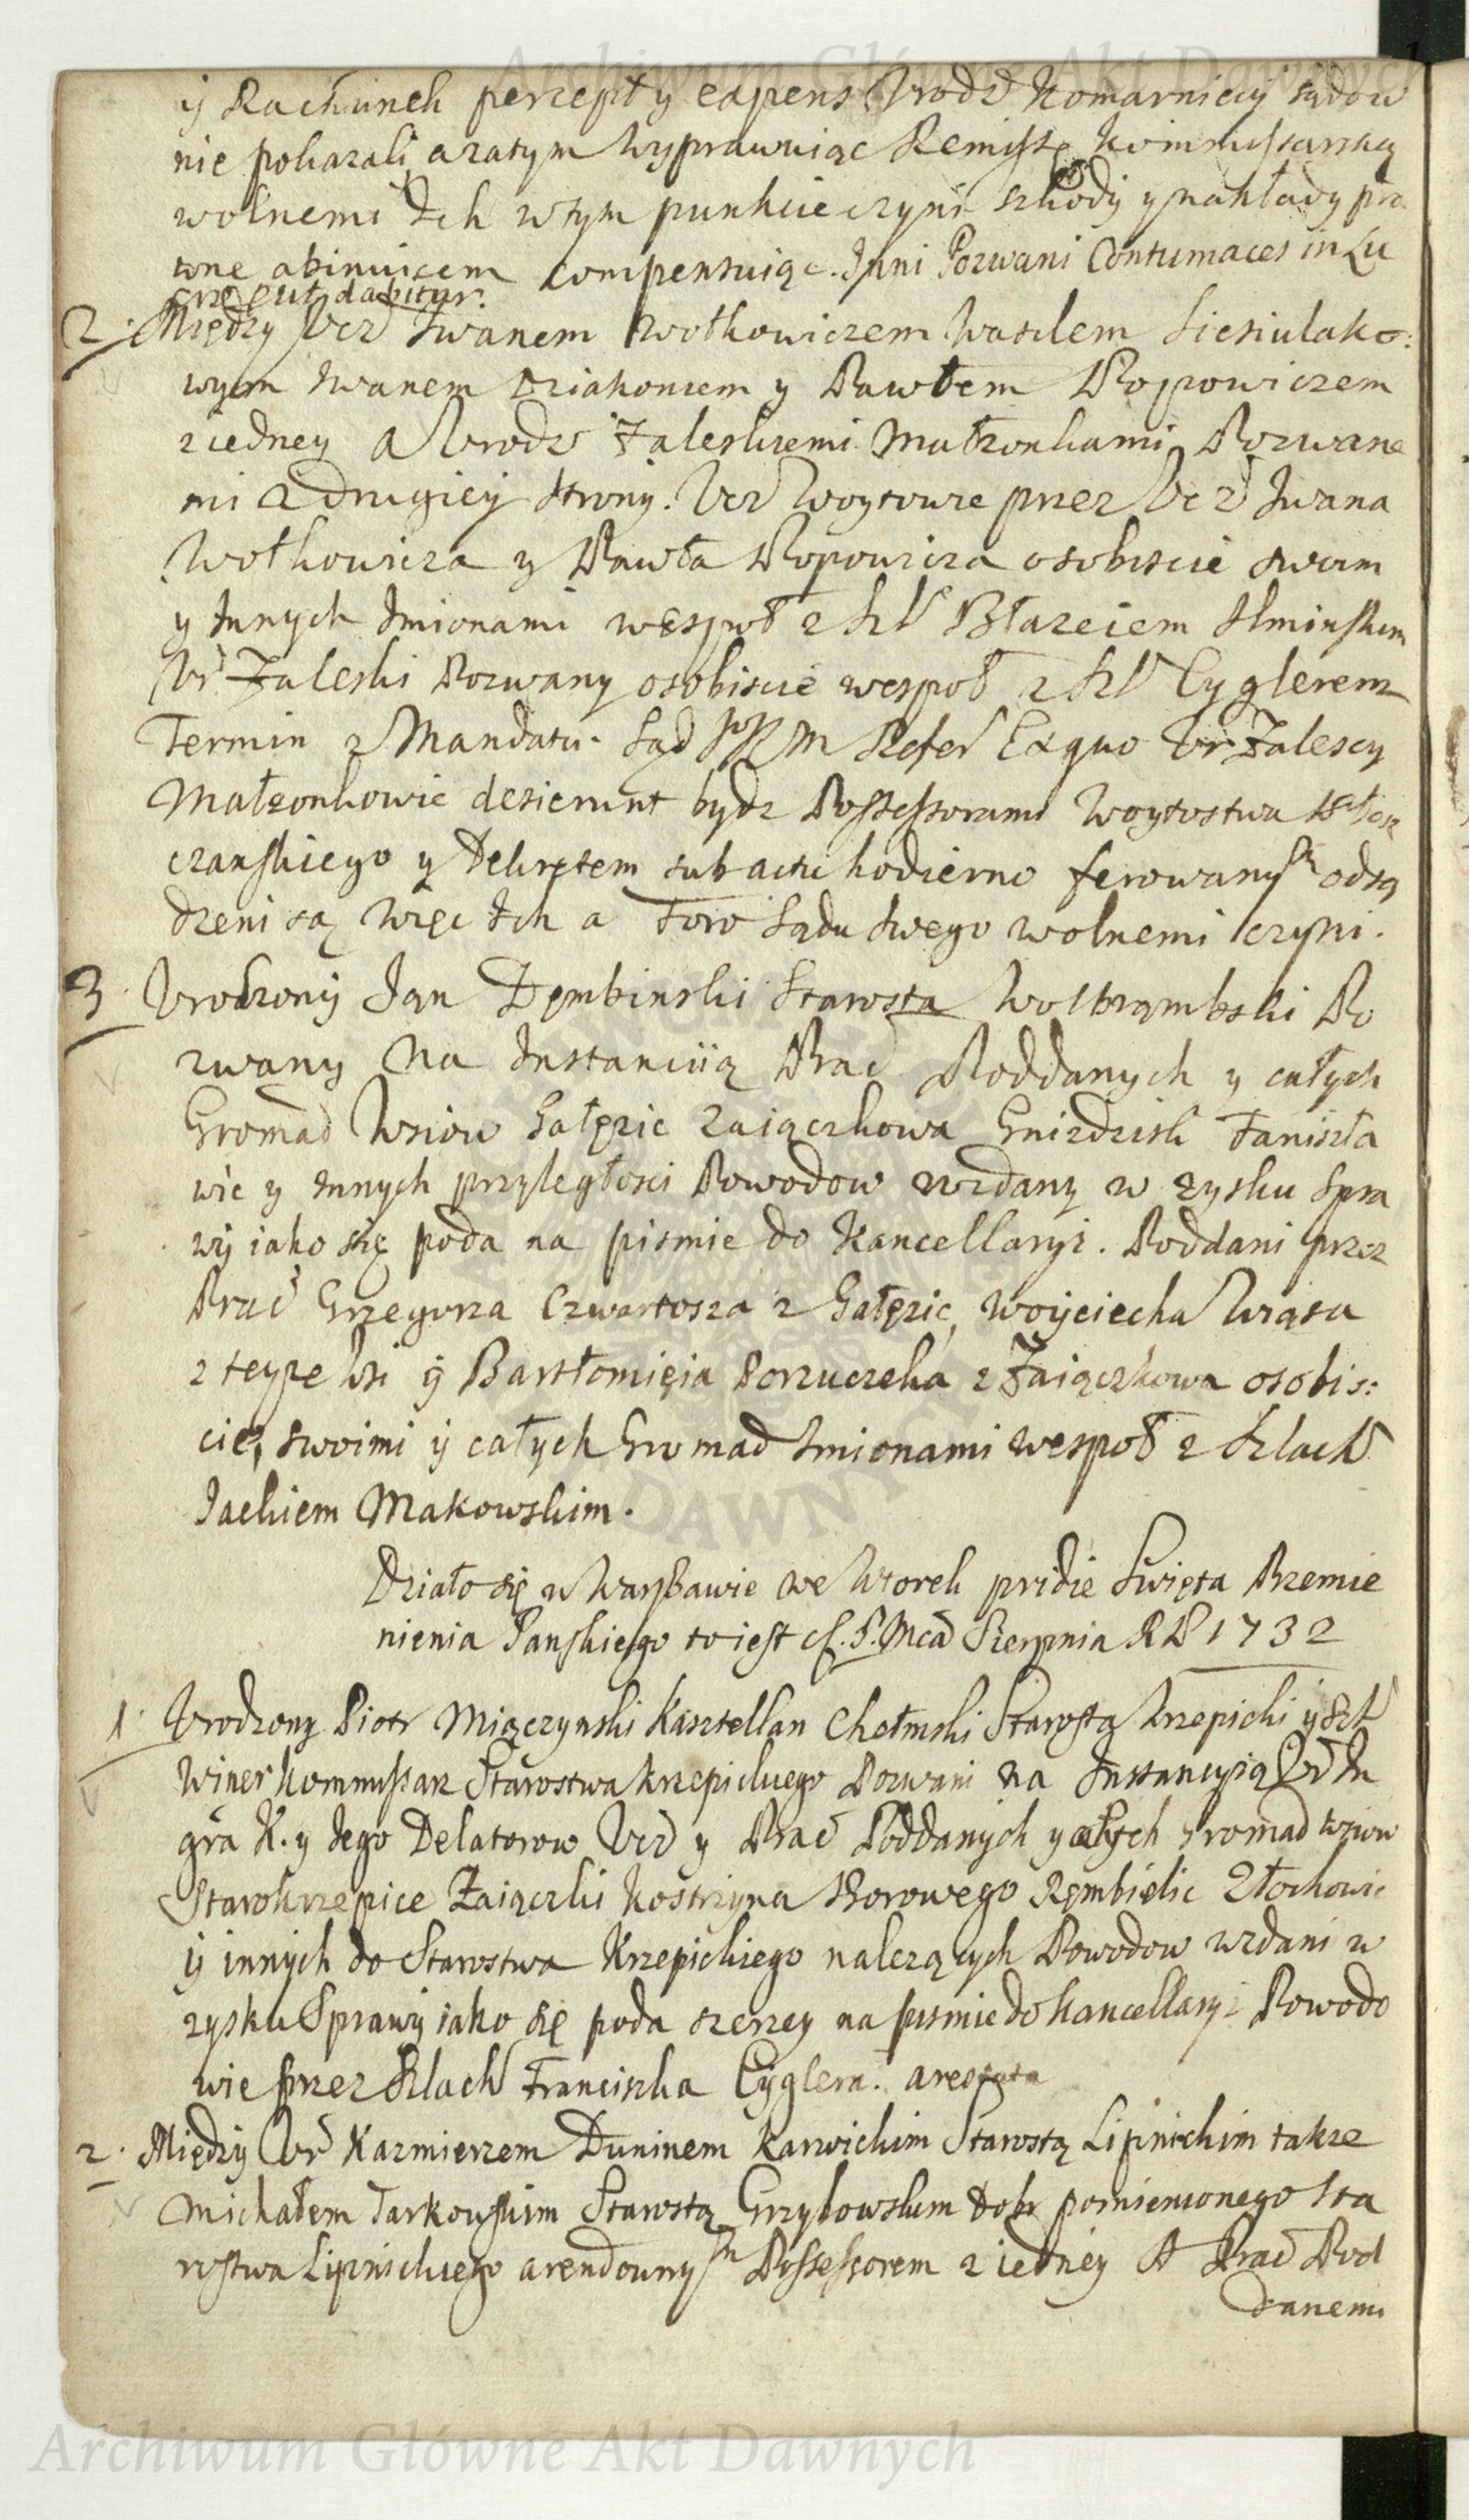 Archiwum Główne Akt Dawnych
ÿ Rachunek percepty expens Vrodź Komarniccy sądow
nie pokazali, a zatym wyprawuiąc Remissę kommissarską
wolnemi Ich w tym punkcie czyni szkody y nakłady pra
wne abinuicem compensuiąc. Inni Pozwani Contumaces in Lu
cro put dabitur.
2. Między Vcz Iwanem Wołkowiczem Wasilem Siesiulako:
wym Iwanem Dziakonem y Pawłem Popowiczem
z iedney a Vrodz Zaleskiemi Małzonkami Pozwane
mi z drugiey strony. Vcz Woytowie przez Vcz Iwana
Wołkowicza y Pawła Popowicza osobiscie swoim
y Innych Imionami wespoł z Szl Błazeiem Ilminskim
Vr Zaleski Pozwany osobiscie wespoł z Szl Cyglerem
Termin z Mandatu. Sąd JKM Refer Ex quo Vr Zalescy
Małzonkowie desierunt bydz Possessorami Woytostwa
czanskiego y Dekretem sub actu hodierno ferowanym odsą
dzeni są więc Ich a Foro Sądu swego wolnemi czyni.
3. Vrodzony Jan Dęmbinski Starosta Wolbrąmbski Po
zwany Na Instanciią Prac Poddanych y całych
Gromad Wsiow Gałęzic Zaiączkowa Gnizdzisk Fanisła
wic y Innych przyległosci Powodow wzdany w zysku Spra
wÿ iako się poda na pismie do Kancellaryi. Poddani przez
Prac Grzegorza Czwartosza z Gałęzic, Woÿciecha Wrąsa
z teyze wsi ÿ Bartłomięia Porzuczeka z Zaiączkowa osobis:
cie, swoimi ÿ całych Gromad Imionami wespoł z Szlach
Jackiem Makowskim.
Działo się w Warszawie we Wtorek pridie Święta Przemie
nienia Panskiego to iest d. 5. Mca Sierpnia RP 1732
1. Vrodzony Piotr Miączynski Kasztellan Chełmski Starosta Krzepicki ÿ Szl
Winer Kommissarz Starostwa Krzepickiego Pozwani na Instancyią Vr In
gra K. y Jego Delatorow Vcz y Prac Poddanych y całych gromad wsiow
Starokrzepice Zaiączki Kostrzyna Borowego Rębielic Złochowic
ÿ innych do Starostwa Krzepickiego nalezących Powodow wzdani w
zysku Sprawÿ iako się poda szerzey na pismie do Kancellaryi Powodo
wie przez Szlach Franciszka Cÿglera. arestata
2. Między Vr Kazmierzem Duninem Karwickim Starostą Lipnickim takze
Michałem Tarkowskim Starostą Grzybowskim Dobr pomienionego Sta
rostwa Lipnickiego arendownym Possessorem z iedney A Prac Pod
danemi
Archiwum Główne Akt Dawnych